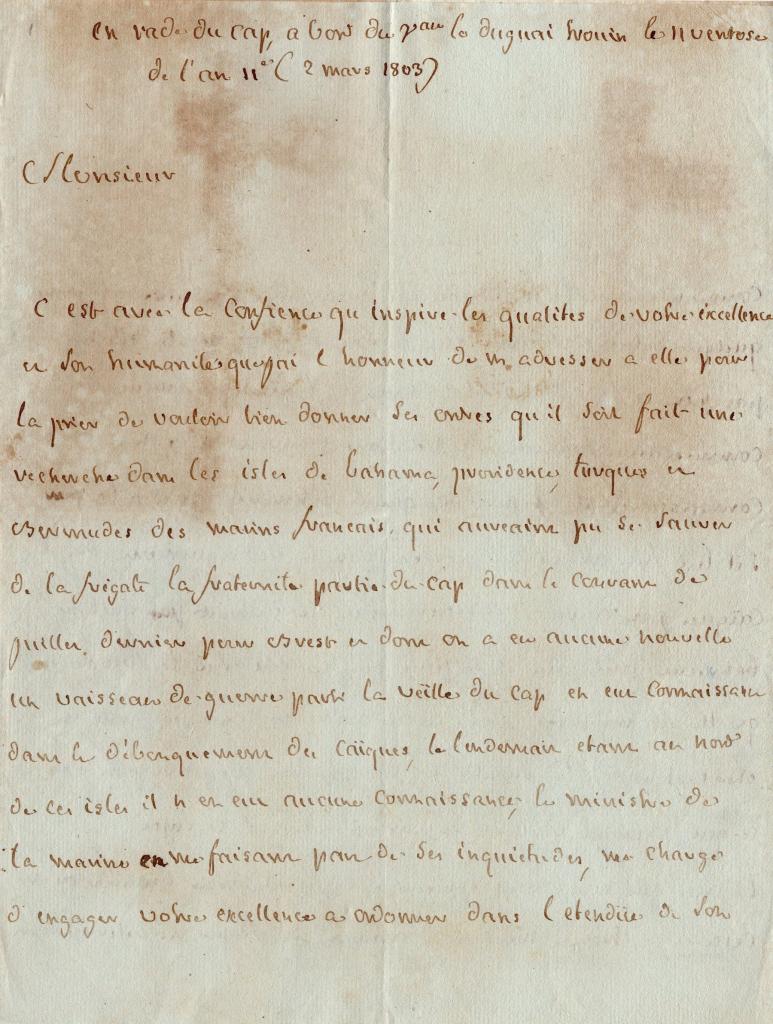 en rade du cap, a bord du vau le duguai trouin le 11 ventose
de l'an 11e ( 2 mars 1803)
Monsieur
C est avec la Confience qu inspire les qualites de votre excellence
et son humanite que j'ai l honneur de m adresser a elle pour
la prier de vouloir bien donner ses ordres qu il soit fait une
recherche dans les isles de bahama, providence, turques et
Bermudes des marins francais qui auraient pu se sauver
de la frégate la fraternite partie du cap dans le courant de
juillet dernier pour Brest et dont on a eu aucune nouvelle
un vaisseau de guerre parti la veille du cap en eut connaissance
dans le débouquement des caïques, le lendemain etant au nord
de ces isles il n en eut aucune connaissance, le ministre de
la marine en me faisant part de ses inquietudes, me charge
d engager votre excellence a ordonner dans l etendüe de son